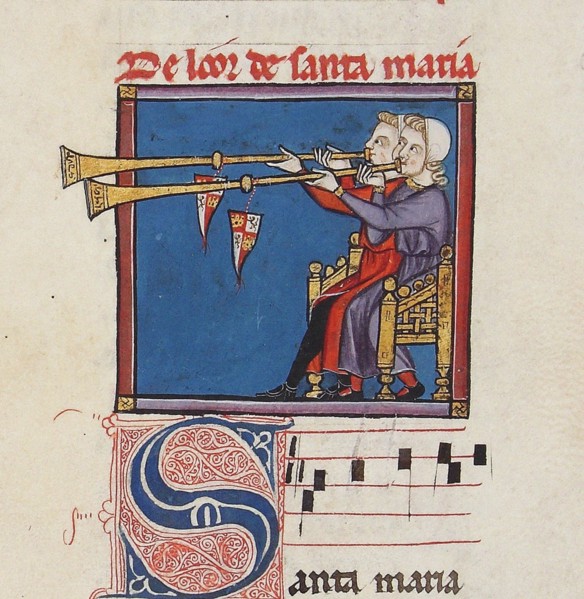 De loor de santa maria
Santa maria